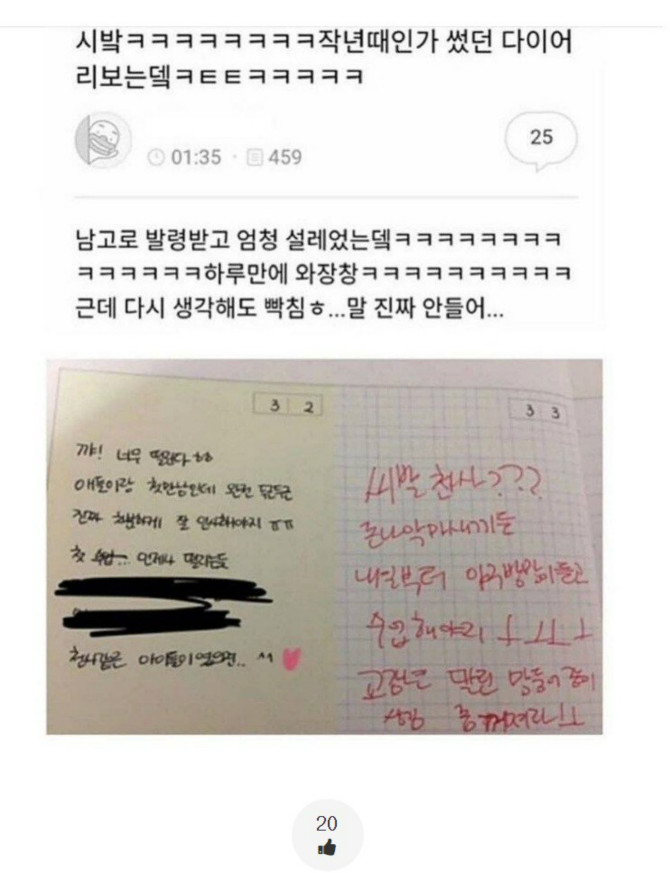 시발ㅋㅋㅋㅋㅋㅋㅋㅋㅋ작년때인가 썼던 다이어
리보는뎈ㅋㅌㅌㅋㅋㅋㅋㅋ
25
01:35 · 459
남고로 발령받고 엄청 설레었는뎈ㅋㅋㅋㅋㅋㅋㅋㅋ
ㅋㅋㅋㅋㅋㅋ하루만에 와장창ㅋㅋㅋㅋㅋㅋㅋㅋㅋㅋ
근데 다시 생각해도 빡침ㅎ...말 진짜 안들어...
3 2
꺄! 너무 떨린다 ㅎㅎ
애들이랑 첫만남인데 완전 두근두근
진짜 친절하게 잘 인사해야지 ㅠㅠ
첫 수업... 언제나 떨리는듯
천사같은 아이들이였으면.. ^^
3 3
씨발 천사???
존나악마새끼들
내일부터 야구방망이들고
수업해야리 ㅗㅗㅜㅗ
고정은 말린 망둥이